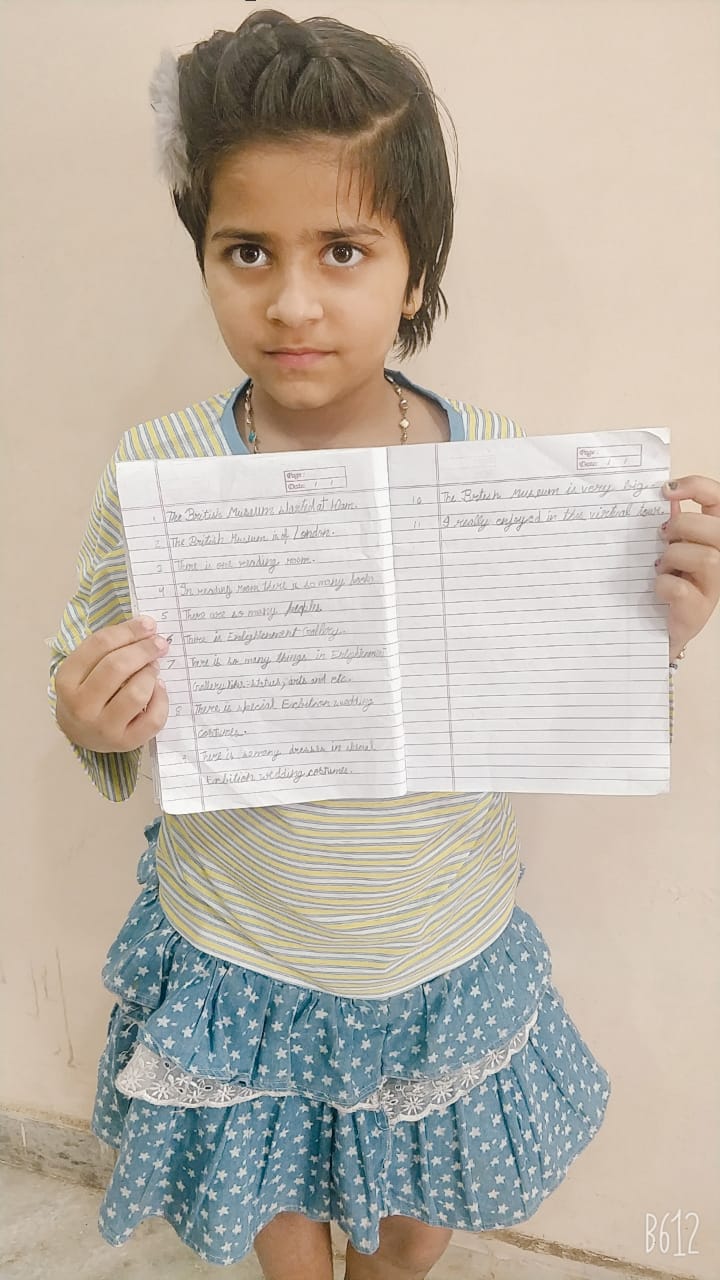 Page:
Date: / /
1 The British Museum started at 10am.
2 The British Museum is of London.
3 There is one reading room.
4 In reading room there is so many books
5 There are so many peoples
6 There is Enlightenment Gallery.
7 There is so many things in Enlightenment
Gallery like:-status, arts and etc.
8 There is special Exbition wedding
costumes.
9 There is so many dresses in
Exbition wedding costumes.
Page:
Date: / /
10 The British Museum is very big.
11 I really enjoyed in this virtual tour.
B612